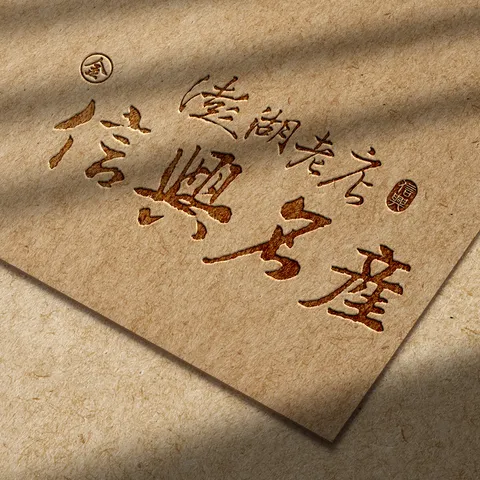 金
澎湖老店
信興
信興名產